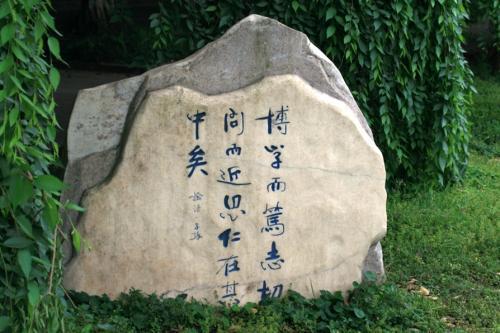 博学而篤志切
问而近思仁在其
中矣